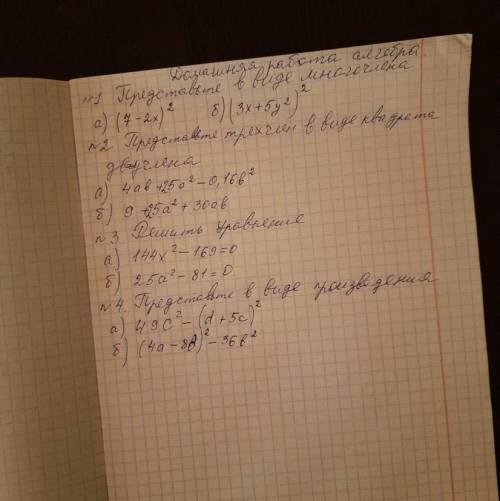 Домашняя работа алгебра
№1 Представьте в виде многочлена
а) (7-2x)², б) (3x+5y²)²
№2 Представьте трехчлен в виде квадрата
двучлена
а) 4ab+25a²-0,16b²
б) 9+25a²+30ab
№3 Решить уравнение
а) 144x²-169=0
б) 25a²-81=0
№4. Представте в виде произведения
а) 49c²-(d+5c)²
б) (4a-8b)²-36b²